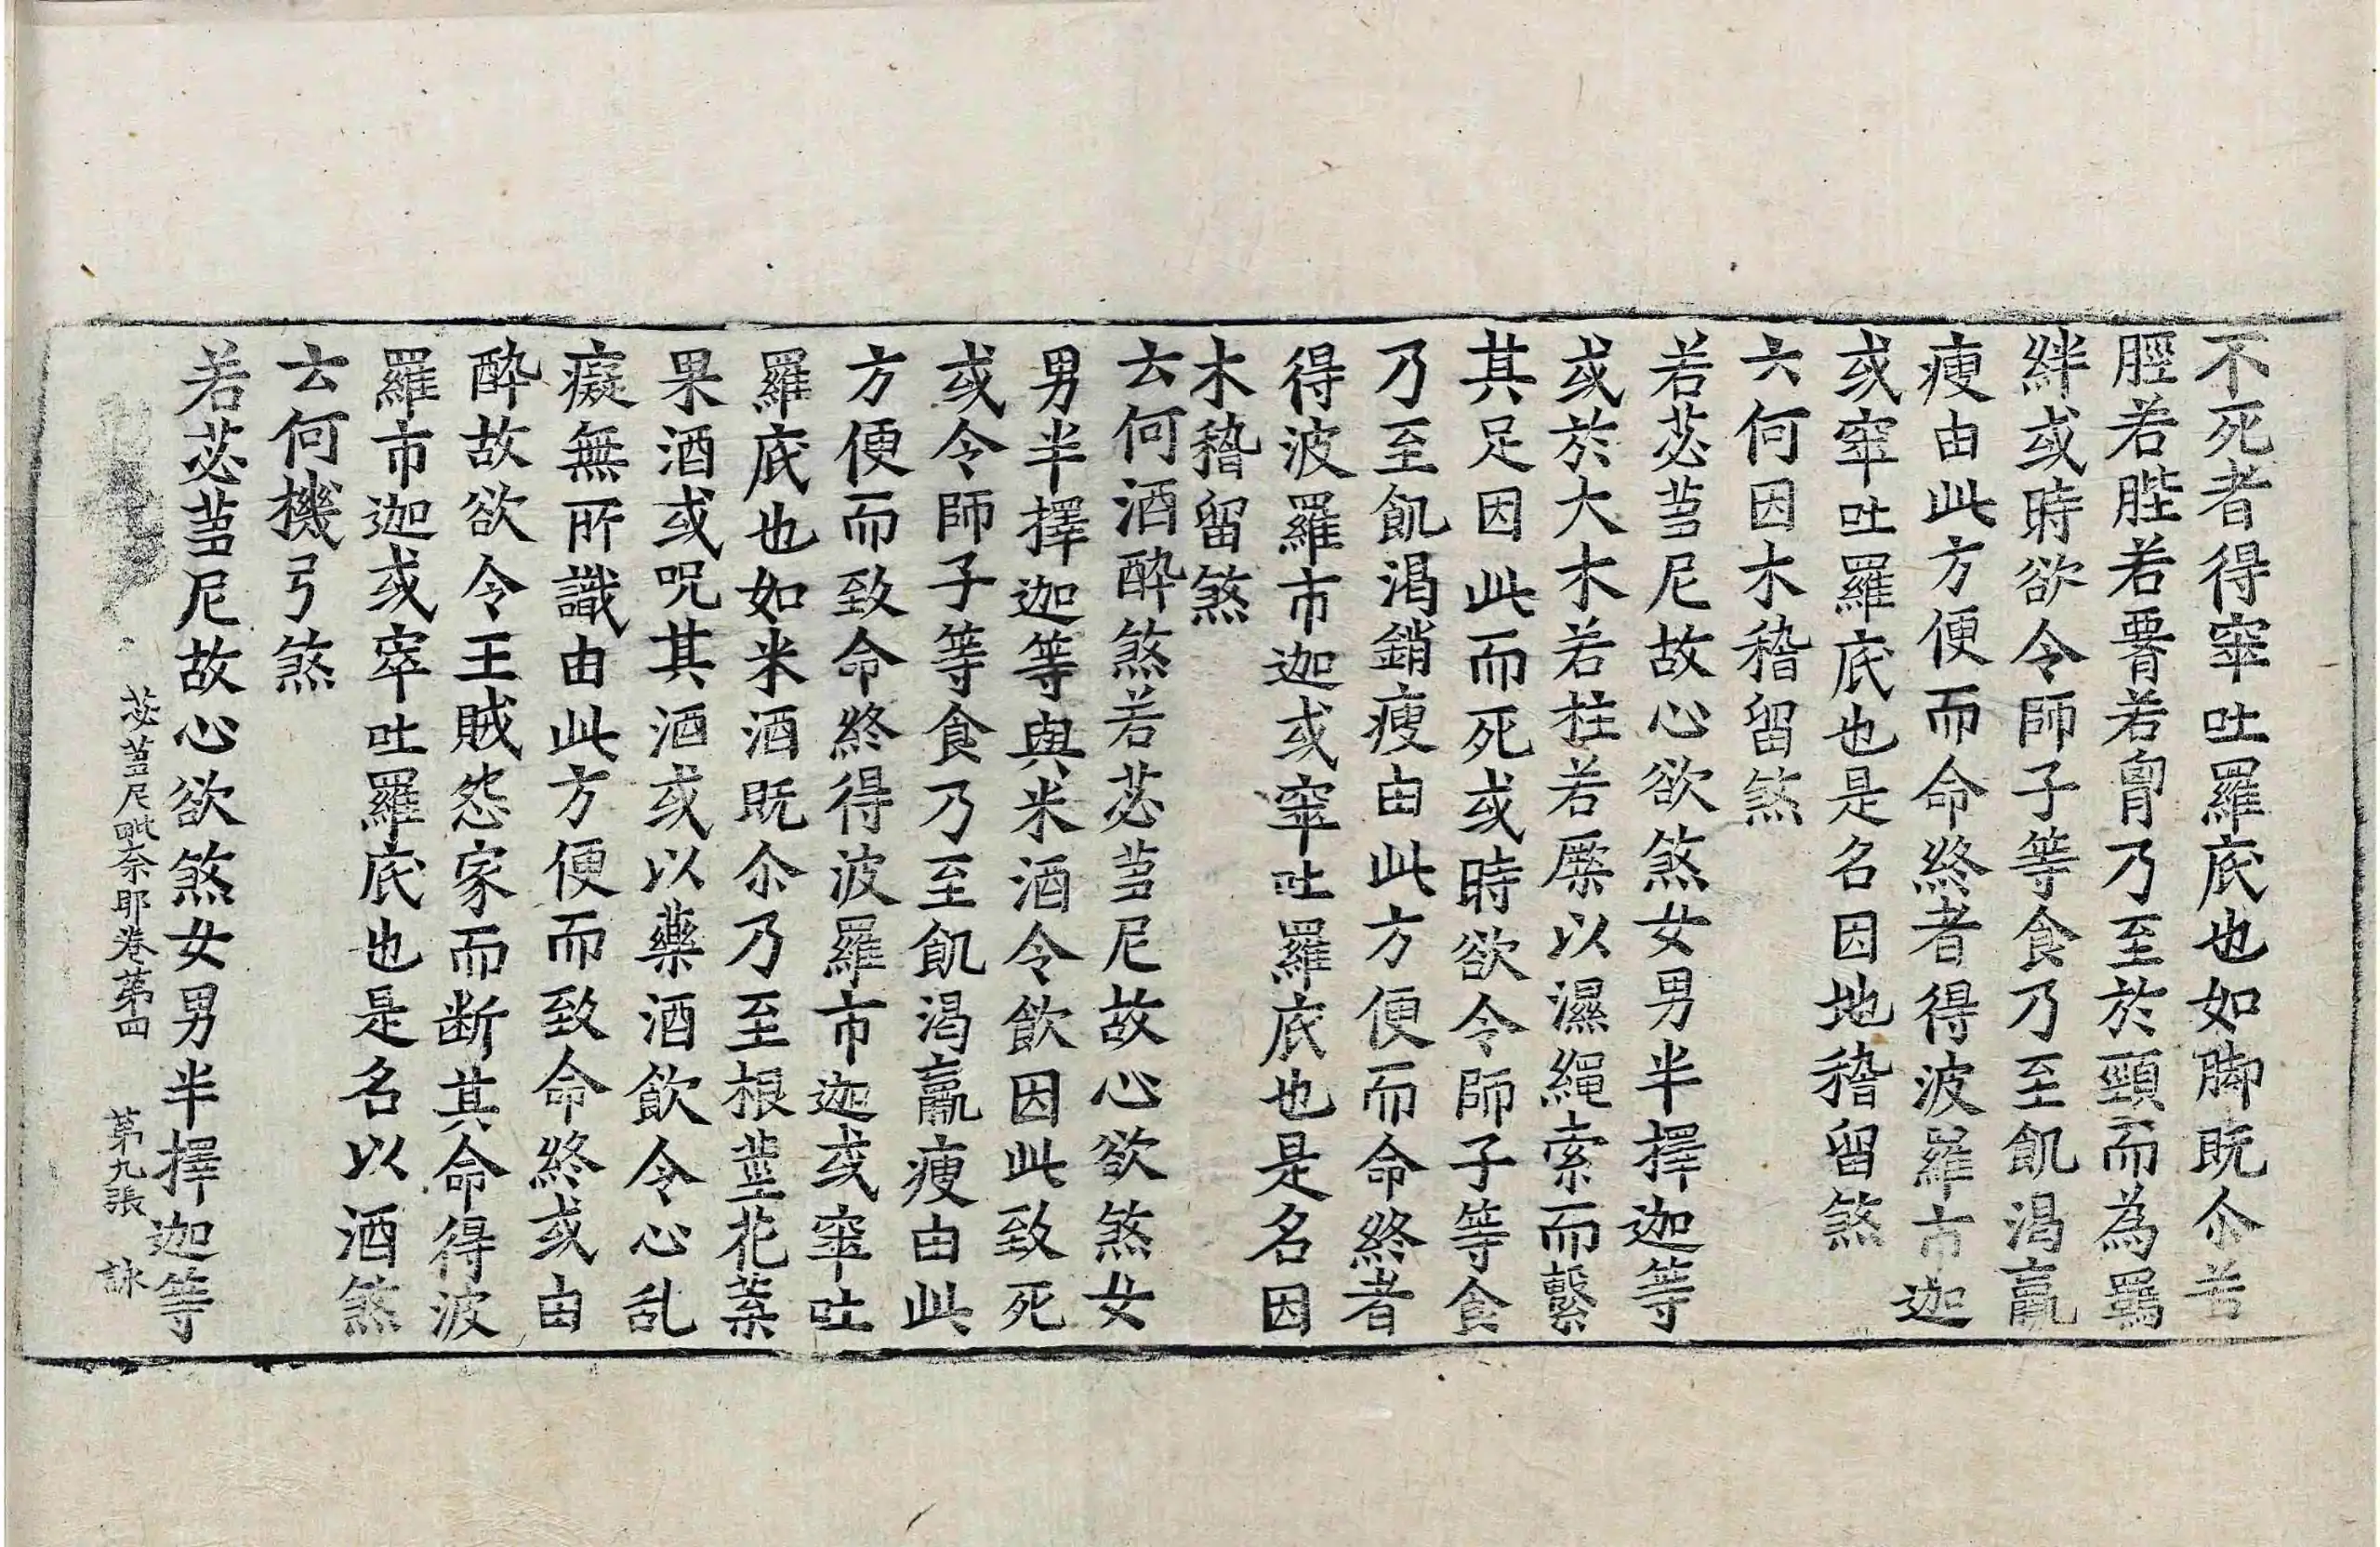 不死者得窣吐羅底也如脚既尒若
脛若䏶若㝽若𦚾乃至於頸而為羂
絆或時欲令師子等食乃至飢渴羸
瘦由此方便而命終者得波羅市迦
或窣吐羅底也是名因地稽留煞
云何因木稽留煞
若苾蒭尼故心欲煞女男半擇迦等
或於大木若柱若橜以濕繩索而繫
其足因此而死或時欲令師子等食
乃至飢渴銷瘦由此方便而命終者
得波羅市迦或窣吐羅底也是名因
木稽留煞
云何酒醉煞若苾蒭尼故心欲煞女
男半擇迦等與米酒令飲因此致死
或令師子等食乃至飢渴羸瘦由此
方便而致命終得波羅市迦或窣吐
羅底也如米酒既尒乃至根莖花葉
果酒或呪其酒或以藥酒飲令心乱
癡無所識由此方便而致命終或由
醉故欲令王賊怨家而断其命得波
羅市迦或窣吐羅底也是名以酒煞
云何機弓煞
若苾蒭尼故心欲煞女男半擇迦等
苾蒭尼毗奈耶卷第四 第九張 詠